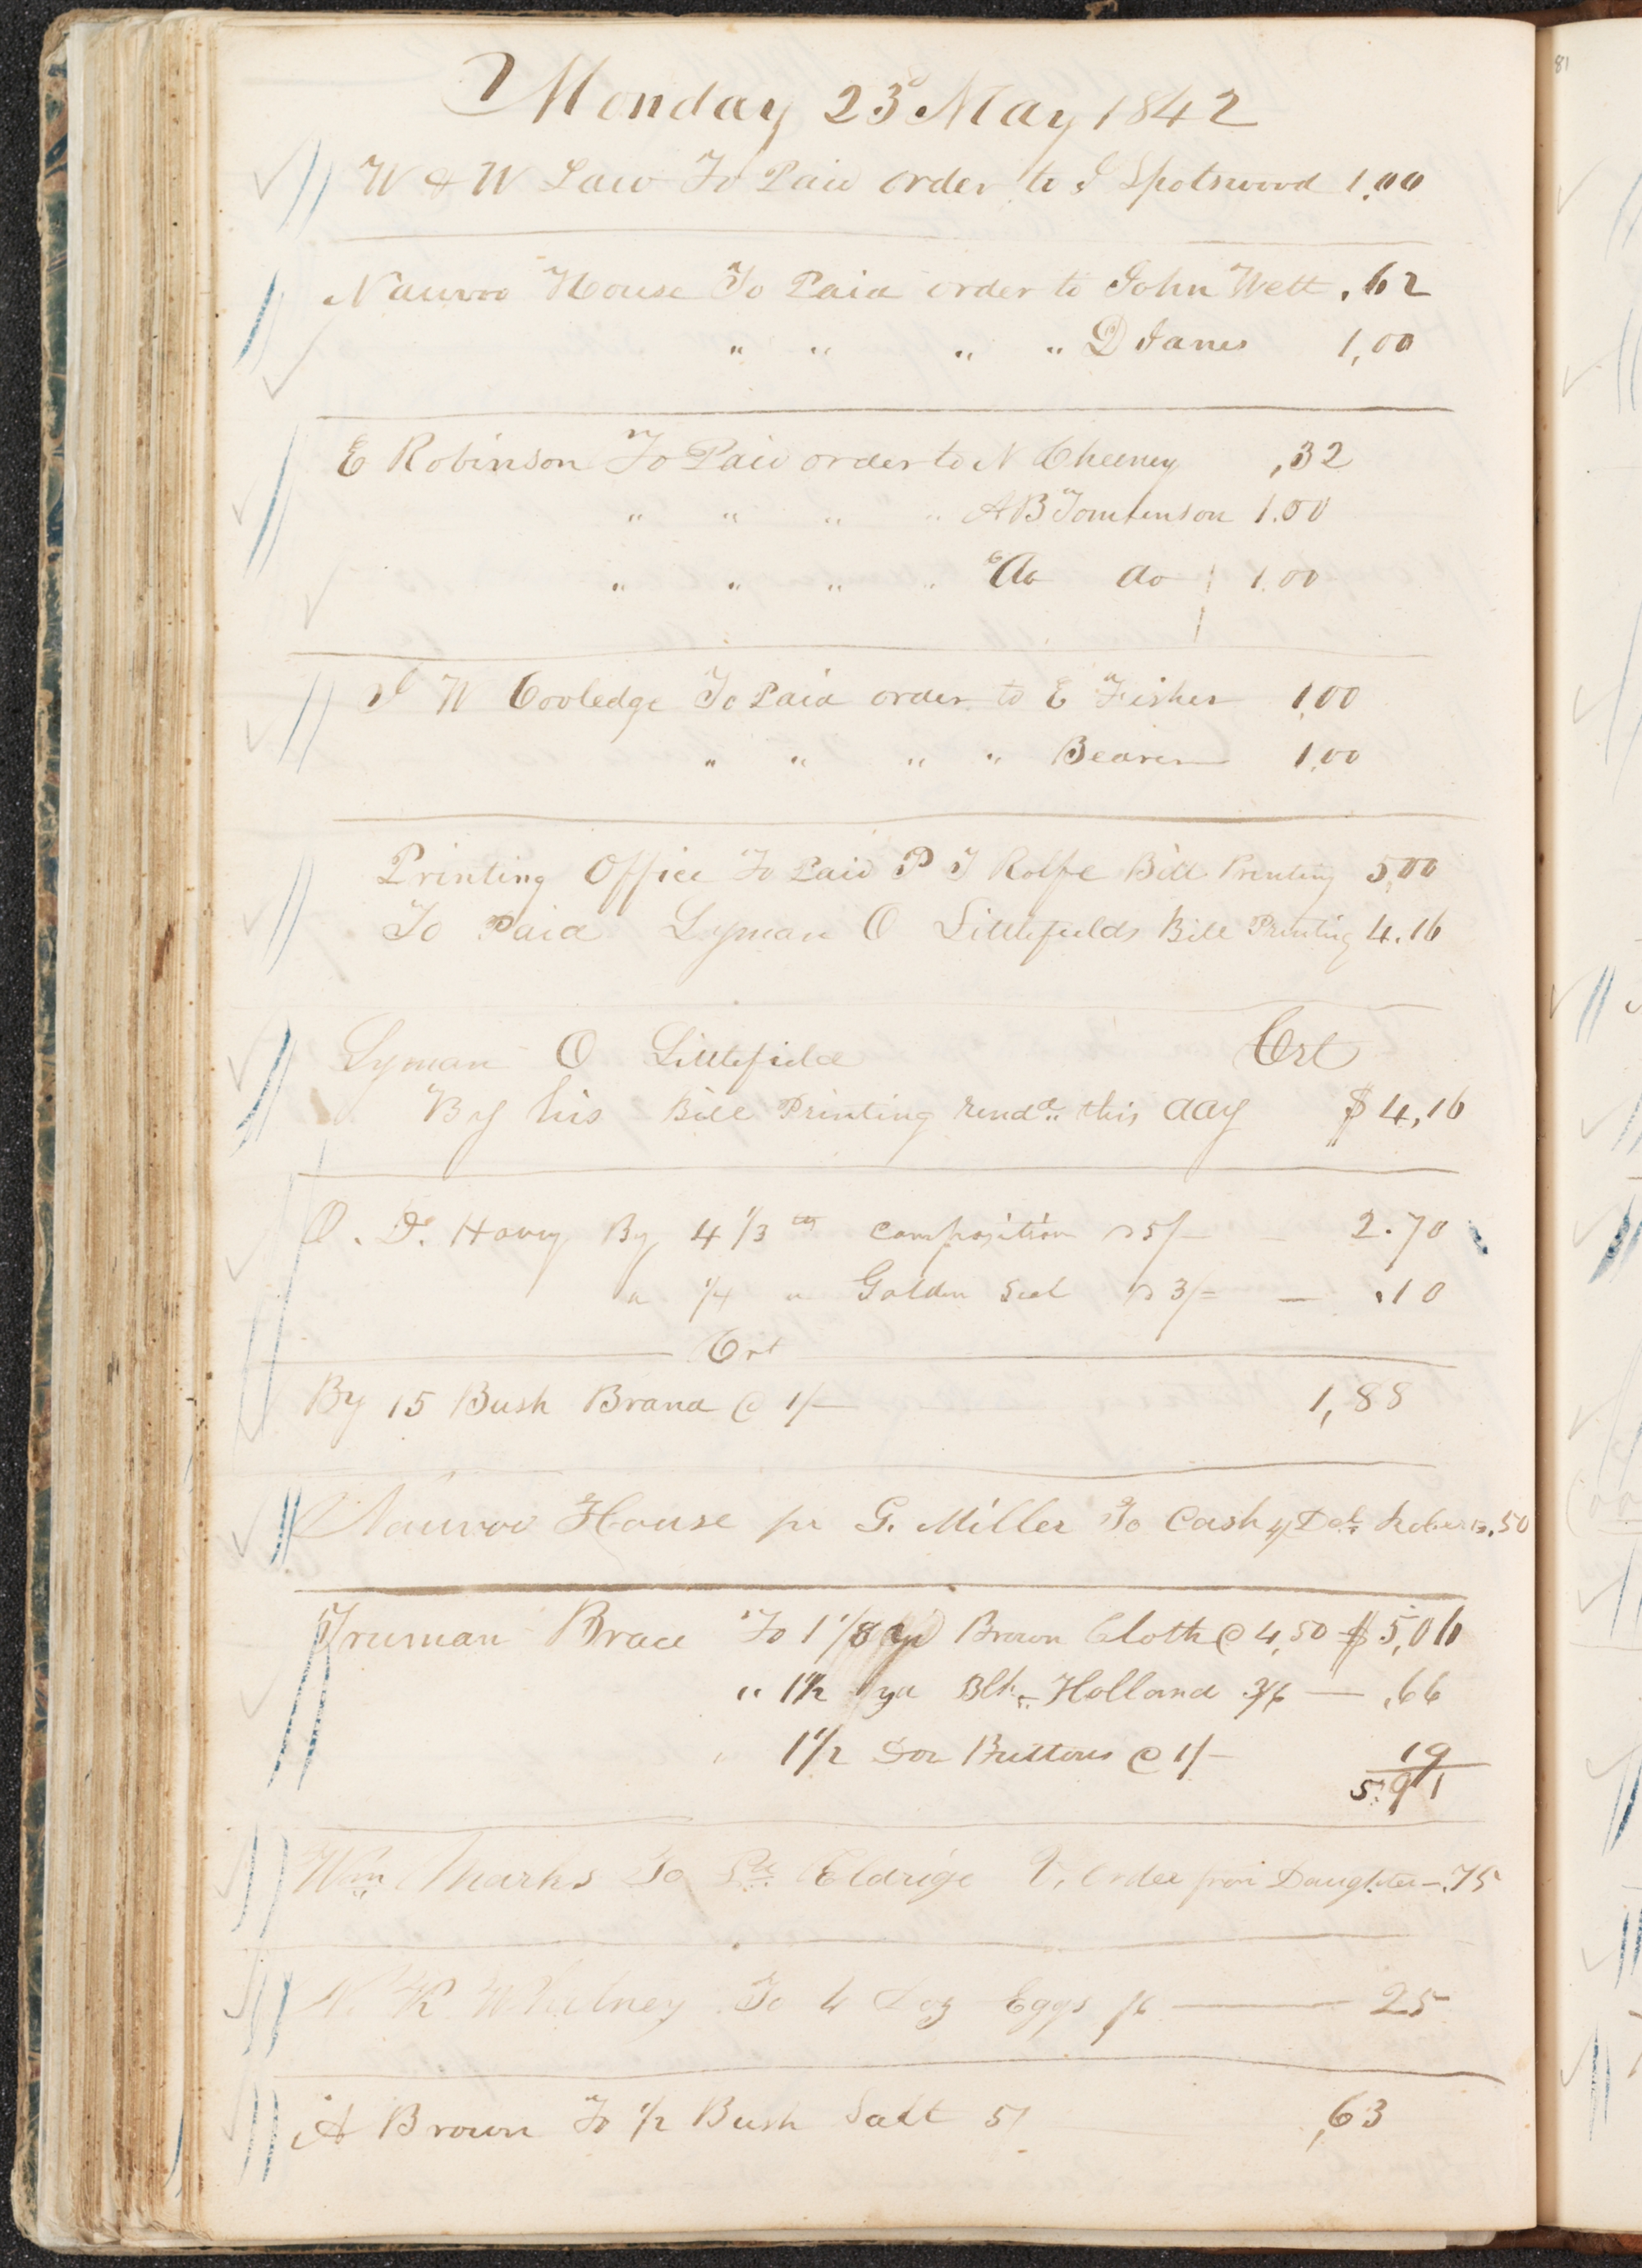 Monday 23d May 1842
W & W Law To Paid order to J Spotswood 1.00
Nauvoo House To Paid order to John Wett ,62
" " " " D Janes 1,00
E Robinson To Paid order to N Cheeney ,32
" " " " A B Tomlinson 1.00
" " " " do do 1.00
J W Cooledge To Paid order to E Fisher 1.00
" " " " Bearer 1.00
Printing Office To Paid P T Rolfe Bill Printing 5,00
To Paid Lyman O Littlefields Bill Printing 4.16
Lyman O Littlefield Crt
By his Bill Printing rendd this day $4,16
O. D. Hovey By 4 1/3 composition 5/- 2.70
" 1/4 " Golden Seal 3/- .10
Crt
By 15 Bush Brand @ 1/- 1,88
Nauvoo House pr G. Miller To Cash Roberts .50
Truman Brace To 1 1/8 yd Brown Cloth @ 4,50 $5,06
" 1 1/2 yd Blk Holland 3/6 — ,66
" 1 1/2 Doz Buttons @ 1/- 19
5.91
Wm Marks To Eldrige Order from Daughter —.75
N. K. Whitney To 4 Doz Eggs /6 — 25
A Brown To 1/2 Bush Salt 5/ ,63
81